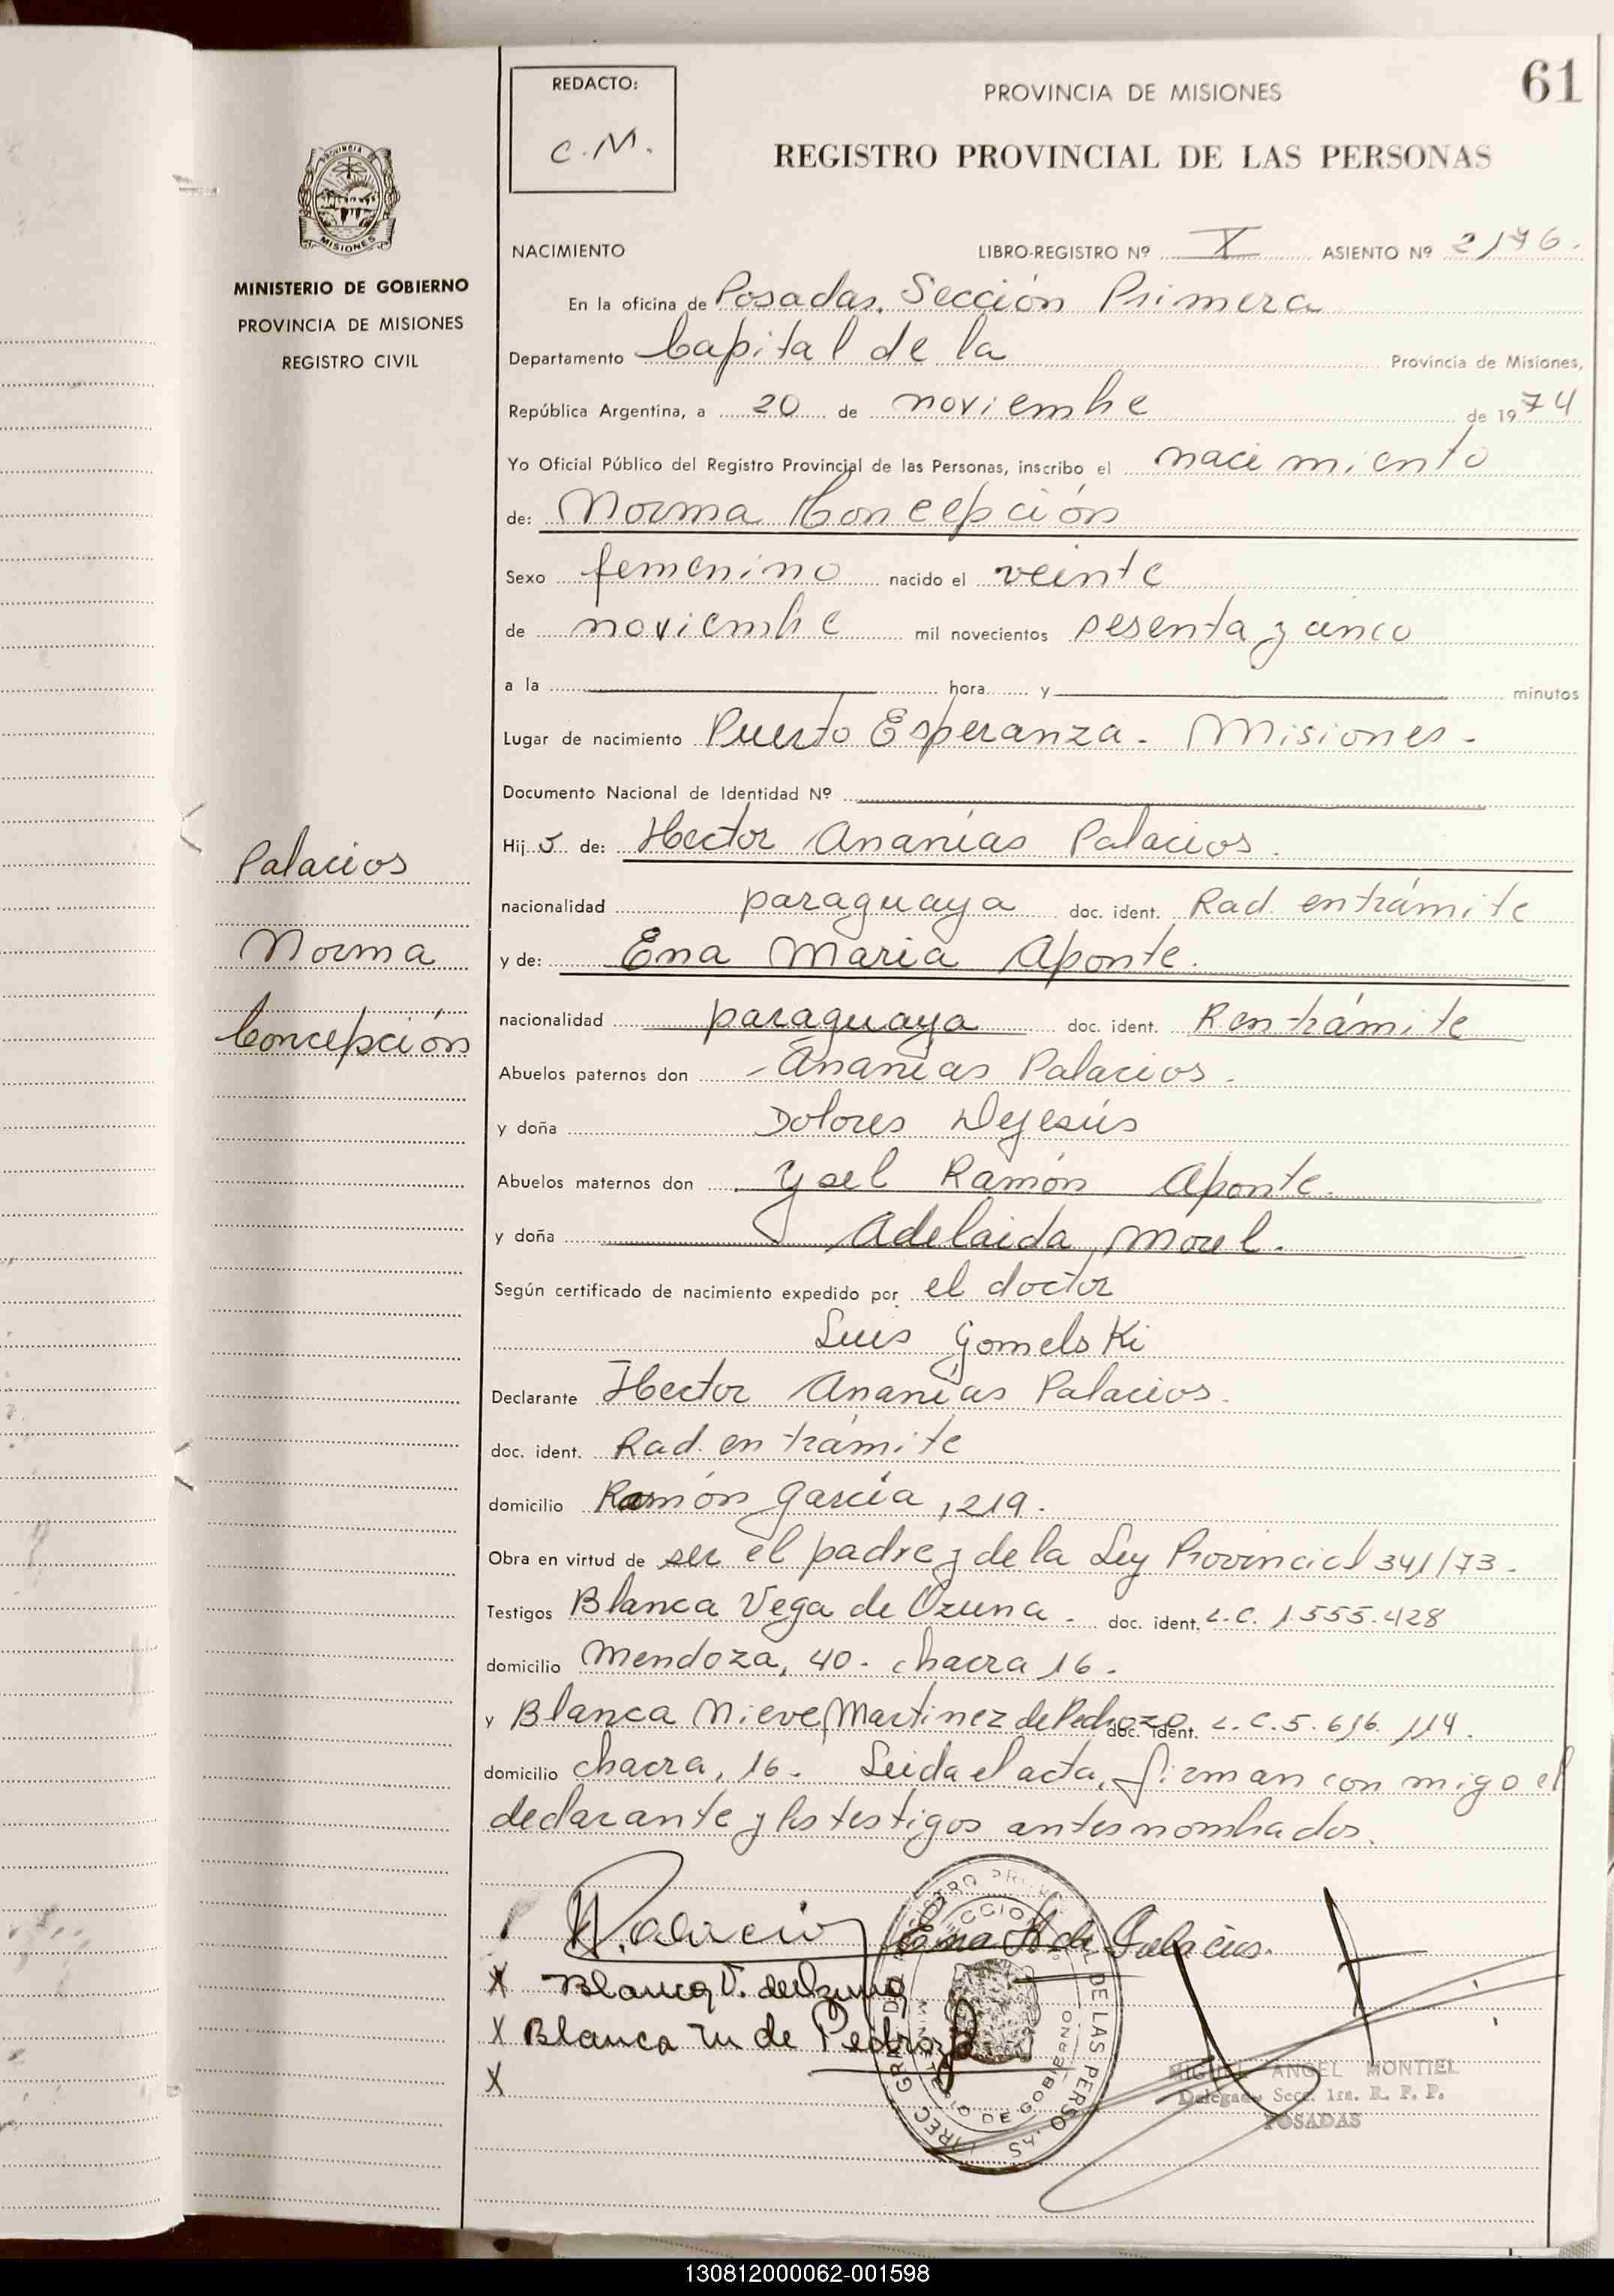 61
REDACTO:
C.M.
PROVINCIA DE MISIONES
REGISTRO PROVINCIAL DE LAS PERSONAS
PROVINCIA DE
MISIONES
MINISTERIO DE GOBIERNO
PROVINCIA DE MISIONES
REGISTRO CIVIL
NACIMIENTO LIBRO-REGISTRO Nº X ASIENTO Nº 2176.
En la oficina de Posadas. Sección Primera
Departamento Capital de la Provincia de Misiones,
República Argentina, a 20 de noviembre de 1974
Yo Oficial Público del Registro Provincial de las Personas, inscribo el nacimiento
de: Norma Concepción
Sexo femenino nacido el veinte
de noviembre mil novecientos sesenta y cinco
a la hora y minutos
Lugar de nacimiento Puerto Esperanza - Misiones -
Documento Nacional de Identidad Nº
Palacios
Norma
Concepción
Hijo de: Hector Ananías Palacios.
nacionalidad paraguaya doc. ident. Rad. en trámite
y de: Ena Maria Aponte.
nacionalidad paraguaya doc. ident. R en trámite
Abuelos paternos don Ananías Palacios.
y doña Dolores Dejesús
Abuelos maternos don Ysel Ramón Aponte.
y doña Adelaida Morel.
Según certificado de nacimiento expedido por el doctor
Luis Gomelski
Declarante Hector Ananías Palacios.
doc. ident. Rad. en trámite
domicilio Ramón García, 219.
Obra en virtud de ser el padre y de la Ley Provincial 341/73.
Testigos Blanca Vega de Ozuna - doc. ident. L.C. 1.555.428
domicilio Mendoza, 40. chacra 16.
y Blanca Nieve Martinez de Pedrozo doc. ident. L.C. 5.616.114.
domicilio chacra, 16. Leida el acta, firman con migo el
declarante y los testigos antes nombrados.
Palacios Ena A de Palacios.
X Blanca V. de Ozuna
X Blanca M de Pedrozo
X
DE LAS PERSONAS
MINISTERIO DE GOBIERNO
MIGUEL ANGEL MONTIEL
Delegado Secc. 1ra. R. P. P.
POSADAS
130812000062-001598